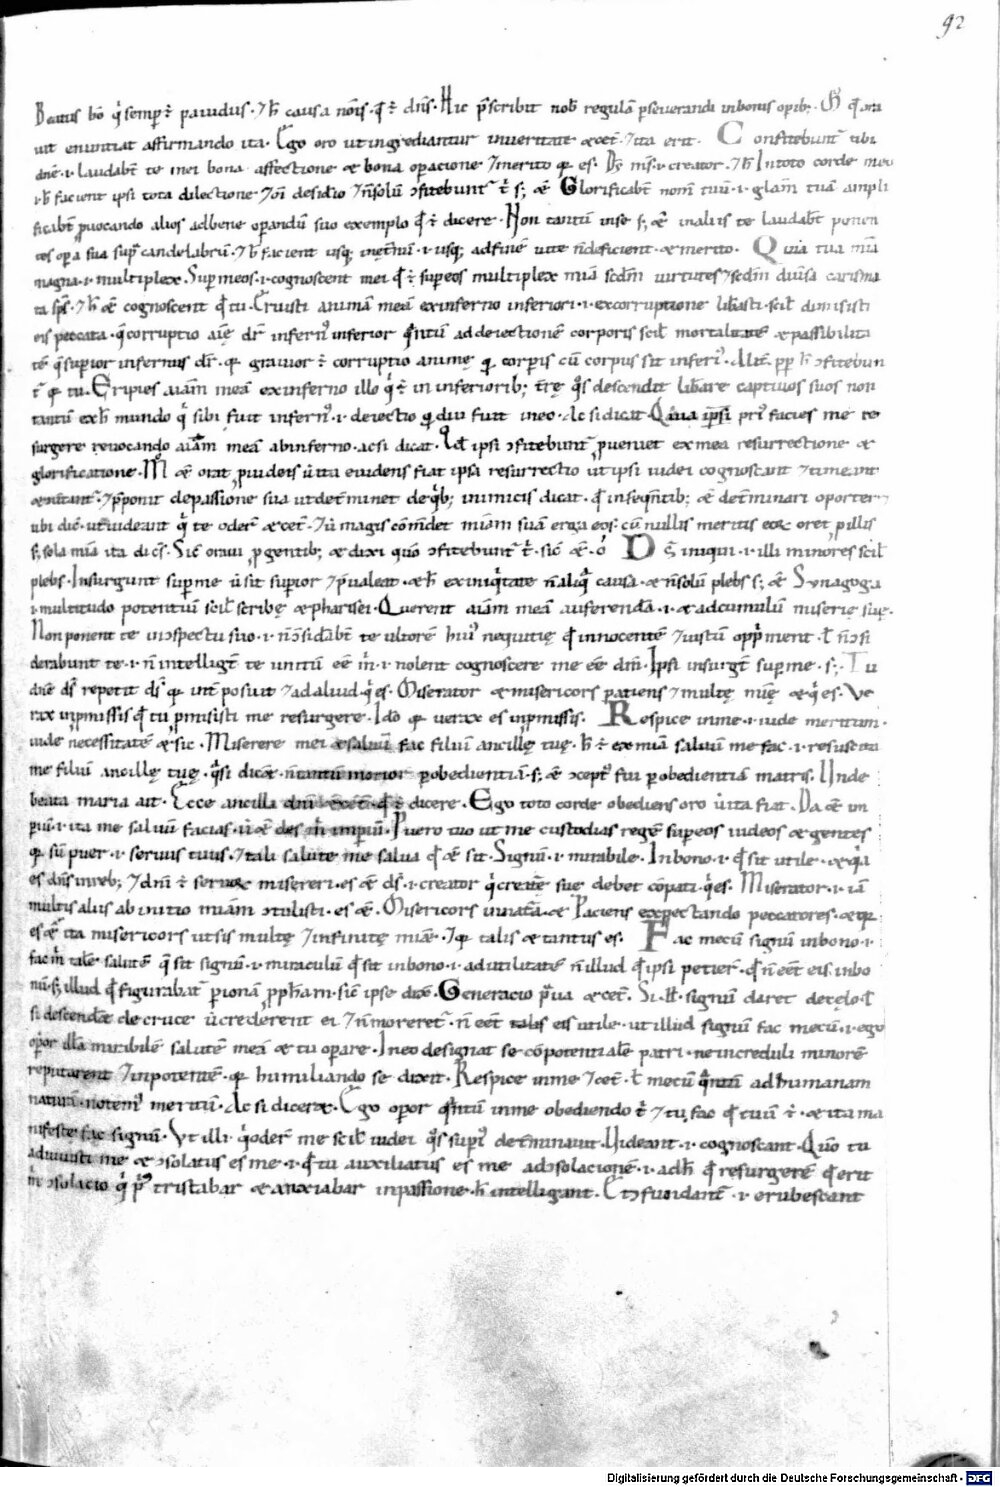 92
Beatus hō q̇ semp ē pauidus · ⁊ h̄ causa nōis · q̄ ē dn̄s · Hic p̄scribit nob̄ regulā pseuerandi in bonis opib; · q̄ ora
uit enuntiat affirmando ita · Ego oro ut ingrediantur in ueritate ⁊ ita erit · Confitebunt̄ tibi
dn̄e · i · laudabt̄ te mei bona affectione & bona opacione ⁊ merito qp es · Ds̄ ms̄ · i · creator · ⁊ h̄ In toto corde meo
· i · h̄ facient ipsi tota dilectione ⁊ desidio ⁊ n̄ solū ɔfitebunt̄ t̄ s; & Glorificabt̄ nom̄ tuū · i · glam̄ tuā ampli
ficabt̄ puocando alios ad bene opandū suo exemplo q̄ ē dicere · Non tantū in se s; & in aliis te laudabt̄ ponen
tes opa sua sup candelabrū · ⁊ h̄ facient usq; in et̄nū · i · usq; ad finē uite n̄ deficient · & merito · Quia tua mīa
magna · i · multiplex · Sup me os · i · cognoscent mei q̄ ē sup eos multiplex mīā scdm̄ uirtutes ⁊ scdm̄ diūsa carisma
ta sps̄ · ⁊ h̄ & cognoscent q̄ tu · Eruisti animā meā ex inferno inferiori · i · ex corruptione libasti · scil dimisisti
eis peccata · q̄ corruptio aīę dr̄ infern; inferior q̄ntū ad deiectionē corporis scil mortalitatē & passibilita
tē q̄ superior infernus dr̄ · qp grauior ē corruptio animę q̄ corpis cū corpus sit inferi; · Alit̄ pp h̄ ɔfitebun
t̄ qp tu · Eripies aīam meā ex inferno illo q̇ ē in inferiorib; t̄rę q̇s descendit libare captiuos suos non
tantū ex h̄ mundo q̇ sibi fuit infern; · i · deiectio q̄ diu fuit in eo · Ac si dicat · Quia ipsi pri; facies me re
surgere reuocando aīam meā ab inferno · ac si dicat · Id ipsi ɔfitebunt̄ p ueniet ex mea resurrectione &
glorificatione · M & orat puidens ita euidens fiat ipsa resurrectio ut ipsi iudei cognoscant ⁊ timeant
⁊ p̄ponit de passione sua ut det̄minet de q̄b; inimicis dicat · q̄ inseqn̄tib; & det̄minari oportet
ubi dic̄ · ut uideant q̇ te oder & cet̄ · ⁊ ū magis cōmdet mīam suā erga eos · cū nullis meritis eoꝝ oret p illis
s; sola mīa ita dic̄s · Sic̄ oraui p gentib; & dixi quō ɔfitebunt̄ t̄ · sic̄ & · o Ds̄ iniqui · i · illi minores scil
plebs · Insurgunt sup me ū sit supior ⁊ p̄ualeat · & h̄ ex iniqtate n̄ aliq̄ causa · & n̄ solū plebs s; & Synagoga
· i · multitudo potentiū scil scribę & pharisei · Querent aīam meā auferendā · i · & ad cumulū miserię suę ·
Non ponent te in ɔspectu suo · i · n̄ ɔsidabt̄ te ultorē hui; nequitię q̄ innocentē ⁊ iustū opp̄ment · t̄ n̄ ɔsi
derabunt te · i · n̄ intelligt̄ te unitū eē m̄ · i · nolent cognoscere me eē dm̄ · Ipsi insurgt̄ sup me · s; · Tu
dn̄e ds̄ repetit ds̄ qp int̄posuit ⁊ ad aliud · q̇ es · Miserator & misericors patiens ⁊ multę mīę & q̇ es · Ve
rax in pmissis q̄ tu pmisisti me resurgere · Ido qp uerax es in pmissis · Respice in me · i · uide meritum ·
uide necessitatē & sic · Miserere mei & saluū fac filiū ancillę tuę · h̄ ē ex mīa saluū me fac · i · resuscita
me filiū ancillę tuę · q̇si dicā · n̄ tantū morior p obedientiā · s; & ɔcept; fui p obedientiā matris · Unde
beata maria ait · Ecce ancilla dn̄i & cet̄ · q̄ ē dicere · Ego toto corde obediens oro ita fiat · Da & im
piū · i · ita me saluū facias · ū & des m̄ impiū · Puero tuo ut me custodias regē sup eos iudeos & gentes
qp sū puer · i · seruus tuus · ⁊ tali salute me salua q̄ & sit · Signū · i · mirabile · In bono · i · q̄ sit utile · & q̄a
es dn̄s in reb; ⁊ dn̄i ē seruoꝝ misereri · es & ds̄ · i · creator q̇ creatę suę debet cōpati · q̇ es · Miserator · i · iā
multis aliis ab initio mīam ɔtulisti · es & · Misericors in natā · & Paciens expectando peccatores · & qp
es & ita misericors ut sis multę ⁊ infinitę mīae · ⁊ qp talis & tantus es · Fac mecū signū in bono · i ·
fac m̄ talē salutē q̄ sit signū · i · miraculū q̄ sit in bono · i · ad utilitatē n̄ illud q̄ ipsi petier · q̄ n̄ eēt eis in bo
nū · s; illud q̄ figurabat̄ p ionam pph̄am · sic̄ ipse dic̄ · Generacio p̄ua & cet̄ · Si & signū daret de cęlo · t̄
si descenderet de cruce ū crederent ei ⁊ n̄ moreret̄ · n̄ eēt talis eis utile · ut illud signū fac mecū · i · ego
opor illā mirabilē salutē meā & tu opare · In eo designat se cōpotentialē patri · ne increduli minorē
reputarent ⁊ inpotentē · qp humiliando se dixit · Respice in me ⁊ cet̄ · t̄ mecū q̄ntū ad humanam
naturā · notem; meritū · Ac si diceret · Ego opor q̄ntū in me obediendo t̄ ⁊ tu fac q̄ tuū ē · & ita ma
nifeste fac signū · Ut illi q̇ oder me scil iudei q̇s supi; det̄minauit · Uideant · i · cognoscant · Quō tu
adiuuisti me & ɔsolatus es me · i · q̄ tu auxiliatus es me ad ɔsolacionē · i · ad h̄ q̄ resurgerē q̄ erit
m̄ ɔsolacio q̇ p̄; tristabar & anxiabar in passione · h̄ intelligant · Et ɔfundant̄ · i · erubescant
Digitalisierung gefördert durch die Deutsche Forschungsgemeinschaft · DFG